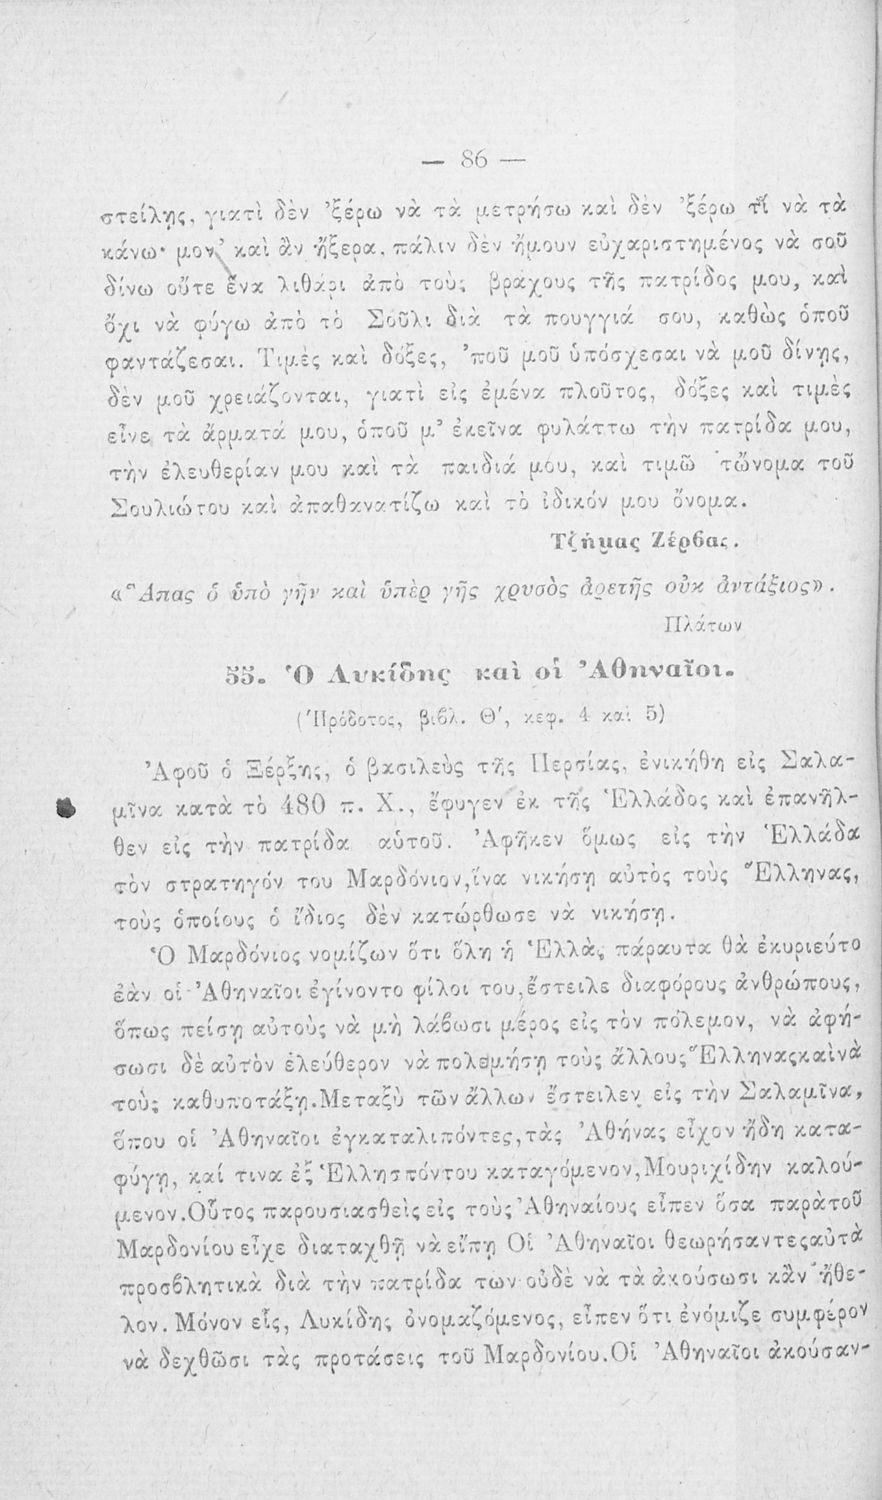 — 86 —
στείλῃς, γιατὶ δὲν ’ξέρω νὰ τὰ μετρήσω καὶ δὲν ’ξέρω τί νὰ τὰ
κάνω· μον’ καὶ ἂν ἤξερα, πάλιν δὲν ἤμουν εὐχαριστημένος νὰ σοῦ
δίνω οὔτε ἕνα λιθάρι ἀπὸ τοὺς βράχους τῆς πατρίδος μου, καὶ
ὄχι νὰ φύγω ἀπὸ τὸ Σοῦλι διὰ τὰ πουγγιά σου, καθὼς ὁποῦ
φαντάζεσαι. Τιμὲς καὶ δόξες, ’ποῦ μοῦ ὑπόσχεσαι νὰ μοῦ δίνῃς,
δὲν μοῦ χρειάζονται, γιατὶ εἰς ἐμένα πλοῦτος, δόξες καὶ τιμὲς
εἶνε τὰ ἄρματά μου, ὁποῦ μ’ ἐκεῖνα φυλάττω τὴν πατρίδα μου,
τὴν ἐλευθερίαν μου καὶ τὰ παιδιά μου, καὶ τιμῶ τὤνομα τοῦ
Σουλιώτου καὶ ἀπαθανατίζω καὶ τὸ ἰδικόν μου ὄνομα.
Τζήμας Ζέρβας.
«Ἅπας ὁ ὑπὸ γῆν καὶ ὑπὲρ γῆς χρυσὸς ἀρετῆς οὐκ ἀντάξιος».
Πλάτων
55. Ὁ Λυκίδης καὶ οἱ Ἀθηναῖοι.
(Ἡρόδοτος, βιβλ. Θ', κεφ. 4 καὶ 5)
Ἀφοῦ ὁ Ξέρξης, ὁ βασιλεὺς τῆς Περσίας, ἐνικήθη εἰς Σαλα-
μῖνα κατὰ τὸ 480 π. Χ., ἔφυγεν ἐκ τῆς Ἑλλάδος καὶ ἐπανῆλ-
θεν εἰς τὴν πατρίδα αὑτοῦ. Ἀφῆκεν ὅμως εἰς τὴν Ἑλλάδα
τὸν στρατηγόν του Μαρδόνιον,ἵνα νικήσῃ αὐτὸς τοὺς Ἕλληνας,
τοὺς ὁποίους ὁ ἴδιος δὲν κατώρθωσε νὰ νικήσῃ.
Ὁ Μαρδόνιος νομίζων ὅτι ὅλη ἡ Ἑλλὰς πάραυτα θὰ ἐκυριεύτο
ἐὰν οἱ Ἀθηναῖοι ἐγίνοντο φίλοι του,ἔστειλε διαφόρους ἀνθρώπους,
ὅπως πείσῃ αὐτοὺς νὰ μὴ λάβωσι μέρος εἰς τὸν πόλεμον, νὰ ἀφή-
σωσι δὲ αὐτὸν ἐλεύθερον νὰ πολεμήσῃ τοὺς ἄλλους Ἕλληνας καὶ νὰ
τοὺς καθυποτάξῃ.Μεταξὺ τῶν ἄλλων ἔστειλεν εἰς τὴν Σαλαμῖνα,
ὅπου οἱ Ἀθηναῖοι ἐγκαταλιπόντες,τὰς Ἀθήνας εἶχον ἤδη κατα-
φύγῃ, καί τινα ἐξ Ἑλλησπόντου καταγόμενον,Μουριχίδην καλού-
μενον.Οὗτος παρουσιασθεὶς εἰς τοὺς Ἀθηναίους εἶπεν ὅσα παρὰ τοῦ
Μαρδονίου εἶχε διαταχθῆ νὰ εἴπῃ Οἱ Ἀθηναῖοι θεωρήσαντες αὐτὰ
προσβλητικὰ διὰ τὴν πατρίδα των οὐδὲ νὰ τὰ ἀκούσωσι κἂν ἤθε-
λον. Μόνον εἷς, Λυκίδης ὀνομαζόμενος, εἶπεν ὅτι ἐνόμιζε συμφέρον
νὰ δεχθῶσι τὰς προτάσεις τοῦ Μαρδονίου.Οἱ Ἀθηναῖοι ἀκούσαν-